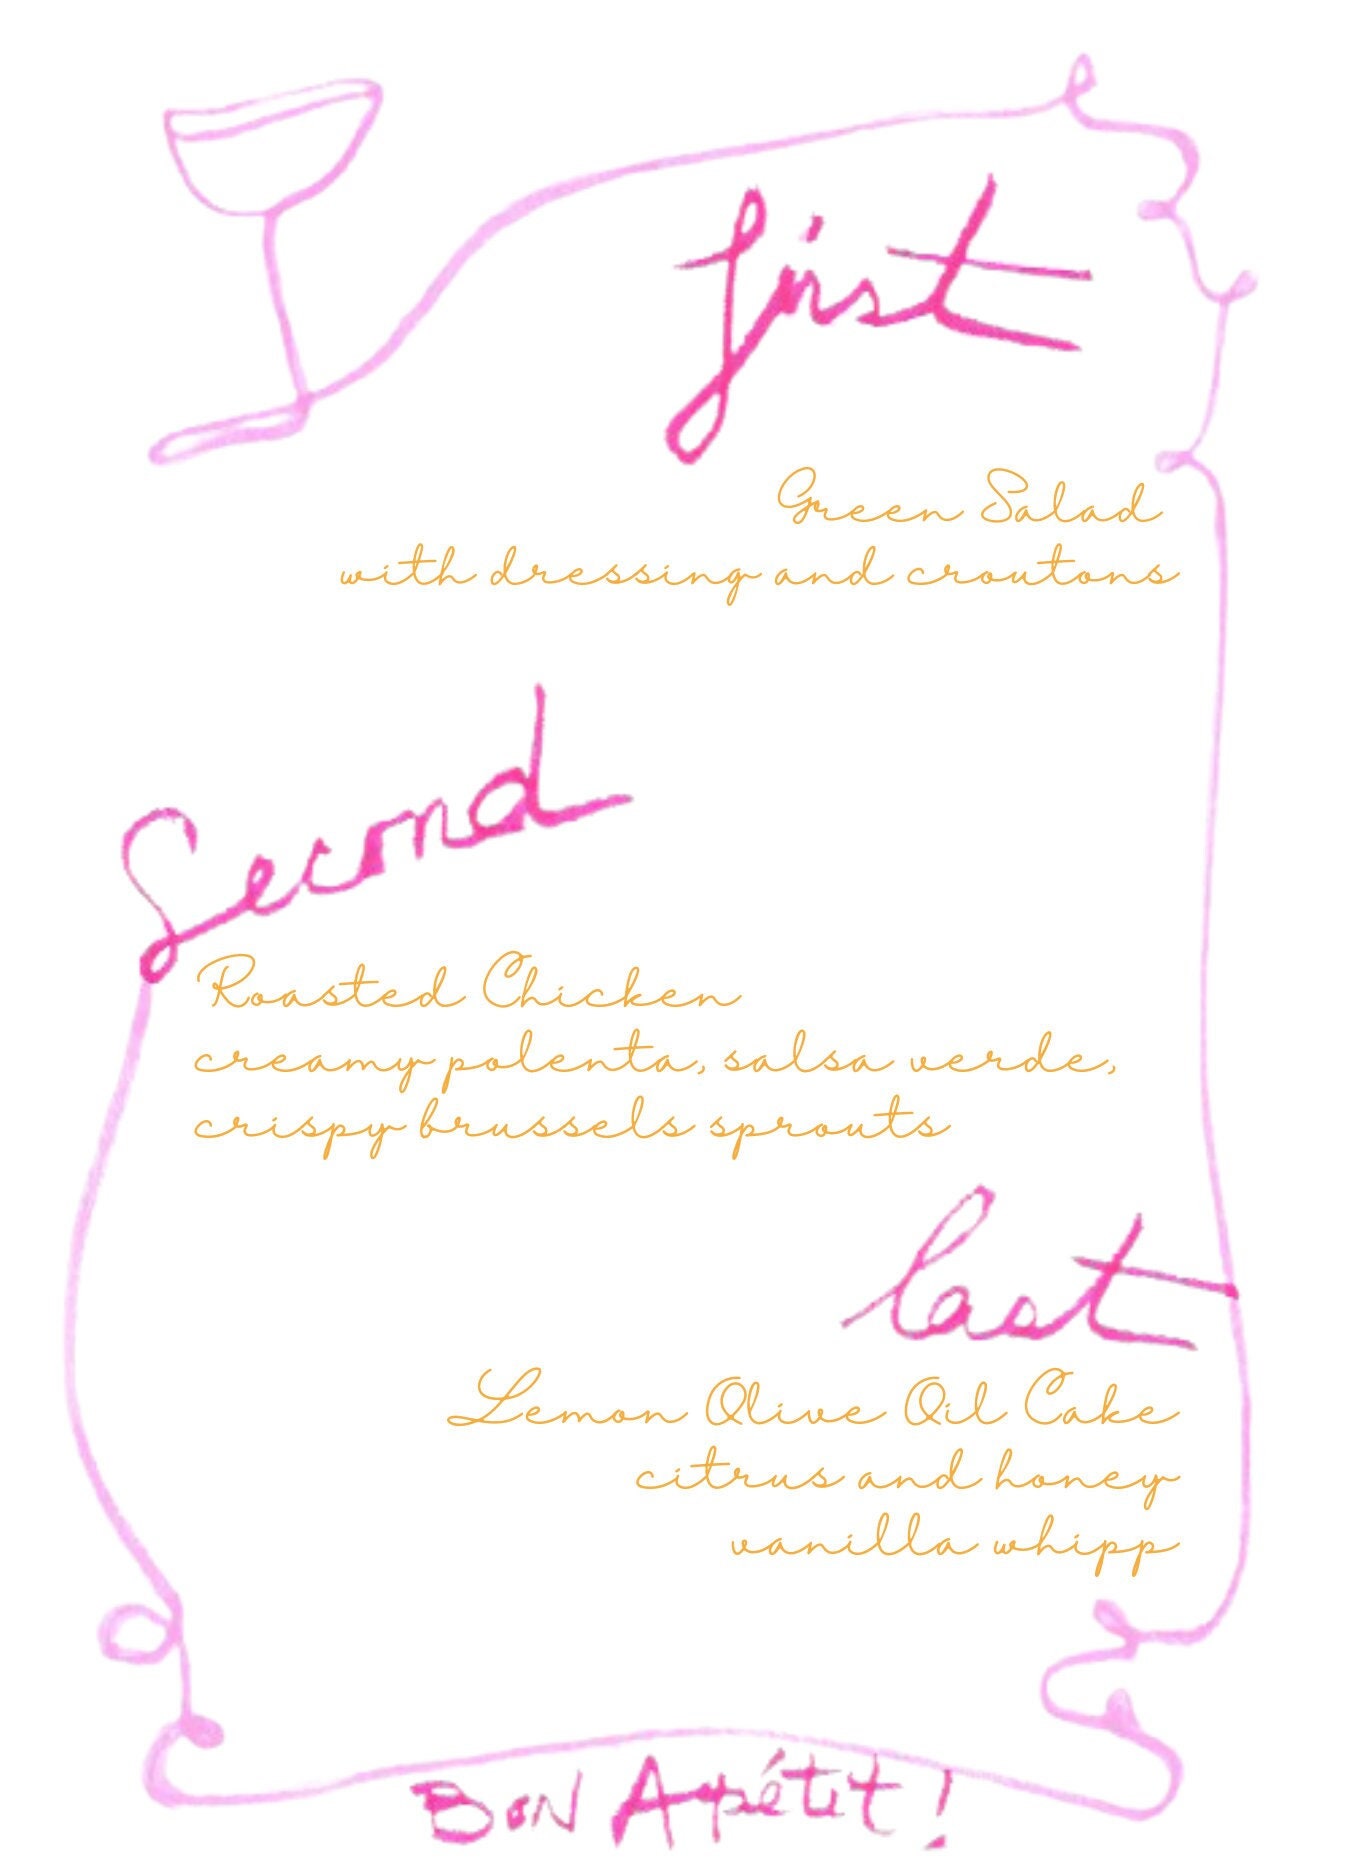 first
Green Salad
with dressing and croutons
Second
Roasted Chicken
creamy polenta, salsa verde,
crispy brussels sprouts
last
Lemon Olive Oil Cake
citrus and honey
vanilla whipp
BON Appétit!